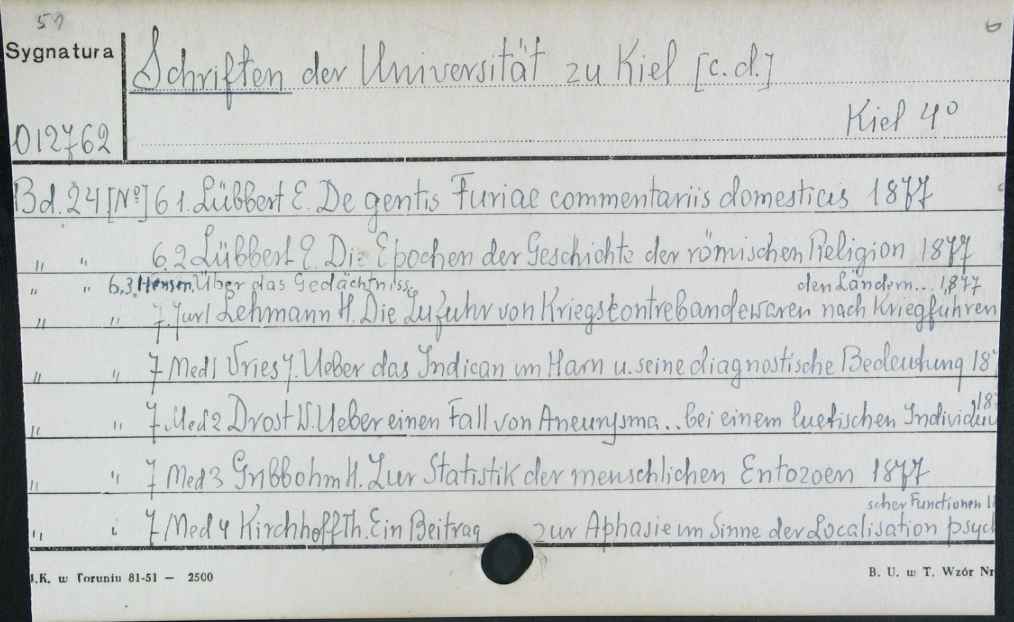 51 6
Sygnatura
Schriften der Universität zu Kiel [c.d.]
012762 Kiel 4°
Bd. 24 [Nº] 6 1. Lübbert E. De gentis Furiae commentariis domesticis 1877
" " 6.2 Lübbert E. Die Epochen der Geschichte der römischen Religion 1877
" " 6,3 Hensen. Über das Gedächtniss
den Ländern... 1877
" " 7. Jur1 Lehmann H. Die Zufuhr von Kriegskontrebandewaren nach Kriegführen
" " 7 Med1 Vries J. Ueber das Indican im Harn u. seine diagnostische Bedeutung 187
" " 7. Med2 Drost W. Ueber einen Fall von Aneurysma.. bei einem luetischen Individuu 187
" " 7 Med3 Gribbohm H. Zur Statistik der menschlichen Entozoen 1877
scher Functionen 1
" i 7 Med4 Kirchhoff Th. Ein Beitrag zur Aphasie im Sinne der Localisation psych
J.K. w Toruniu 81-51 — 2500
B. U. w T. Wzór Nr